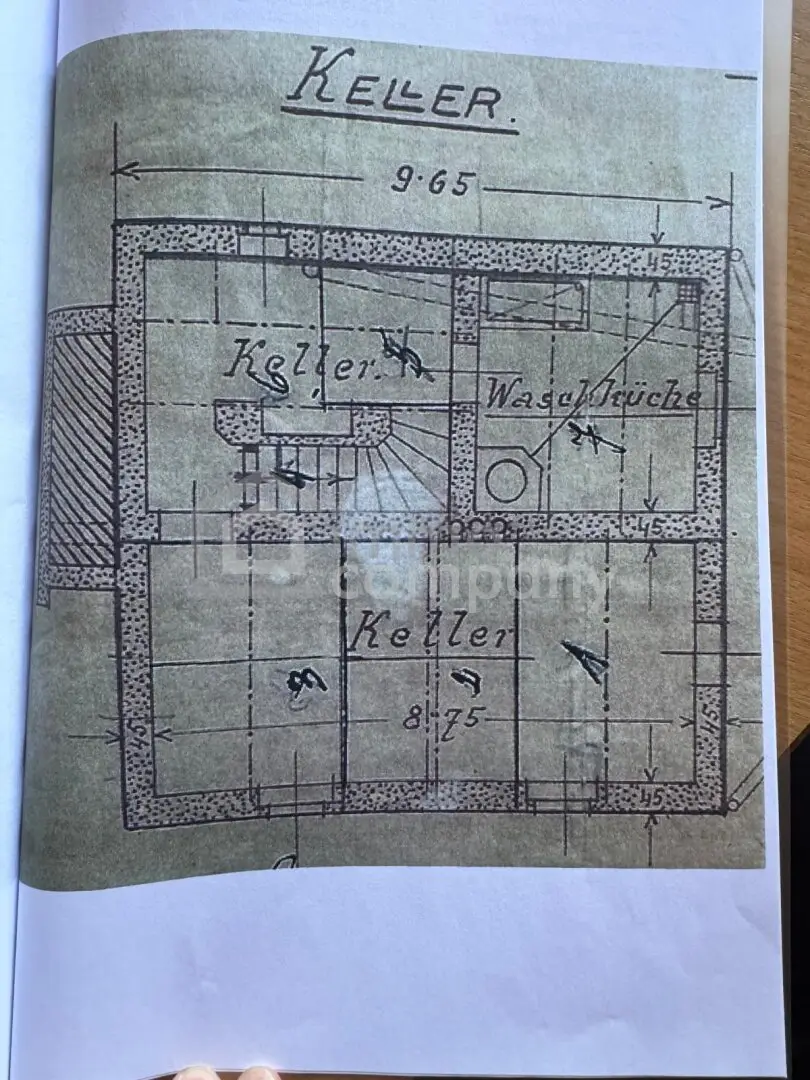 KELLER.
9·65
45
Keller.
Waschküche
45
company
Keller
8·75
45
45
45